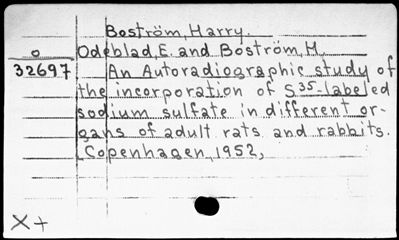 Boström, Harry.
o Odeblad, E. and Boström, H.
32697 An Autoradiographic study of
the incorporation of S35-labeled
sodium sulfate in different or-
gans of adult rats and rabbits.
Copenhagen, 1952,
X+